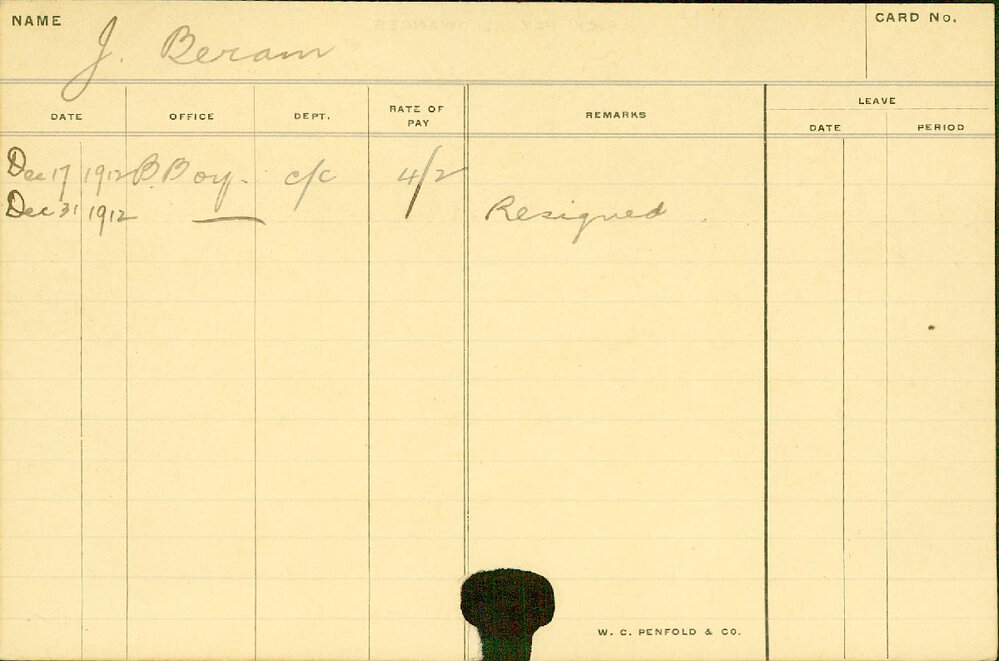 NAME J. Beram CARD No.
DATE OFFICE DEPT. RATE OF PAY REMARKS LEAVE
DATE PERIOD
Dec 17 1912 B. Boy. c/c 4/2
Dec 31 1912 — Resigned.
W. C. PENFOLD & CO.